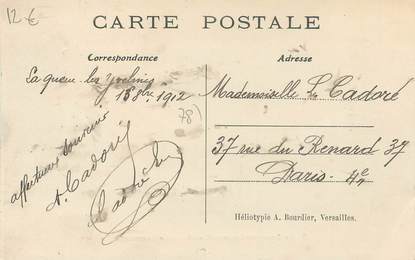 12 €
CARTE POSTALE
Correspondance
Adresse
La queue les Yvelines
18 8bre 1912
(78)
affectueux souvenir
A. Cadoré
Mademoiselle L. Cadoré
37 rue du Renard 37
Paris. 4e
Héliotypie A. Bourdier, Versailles.